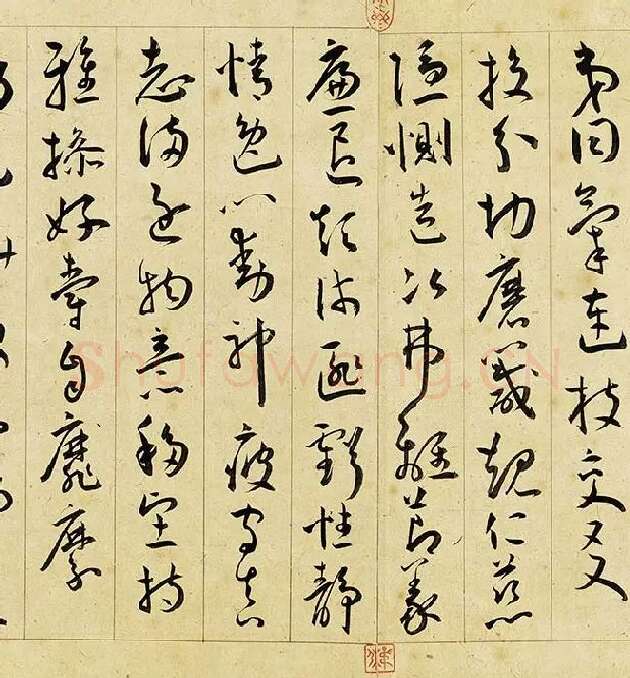 弟同氣連枝交友
投分切磨箴規仁慈
隱惻造次弗離節義
廉退顛沛匪虧性靜
情逸心動神疲守真
志滿逐物意移堅持
雅操好爵自靡縻
Shufawang.CN